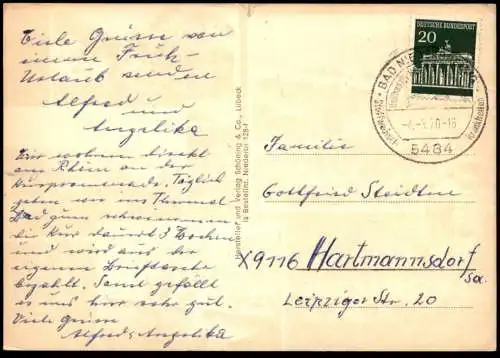 Viele Grüsse von
einem Früh-
Urlaub senden
Alfred
und
Angelika
Wir wohnen direkt
am Rhein an der
Kurpromenade. Täglich
gehen wir ins Thermal
Bad zum schwimmen
die Kur dauert 3 Wochen
und wird aus der
eigenen Brieftasche
bezahlt. Sonst gefällt
es uns hier sehr gut.
Viele Grüsse
Alfred & Angelika
Hersteller und Verlag Schöning & Co., Lübeck
Bestellnr. Niederbr 128
DEUTSCHE BUNDESPOST
20
BAD NI
70-18
5484
Familie
Gottfried Steidten
X9116 Hartmannsdorf
Sa.
Leipziger Str. 20